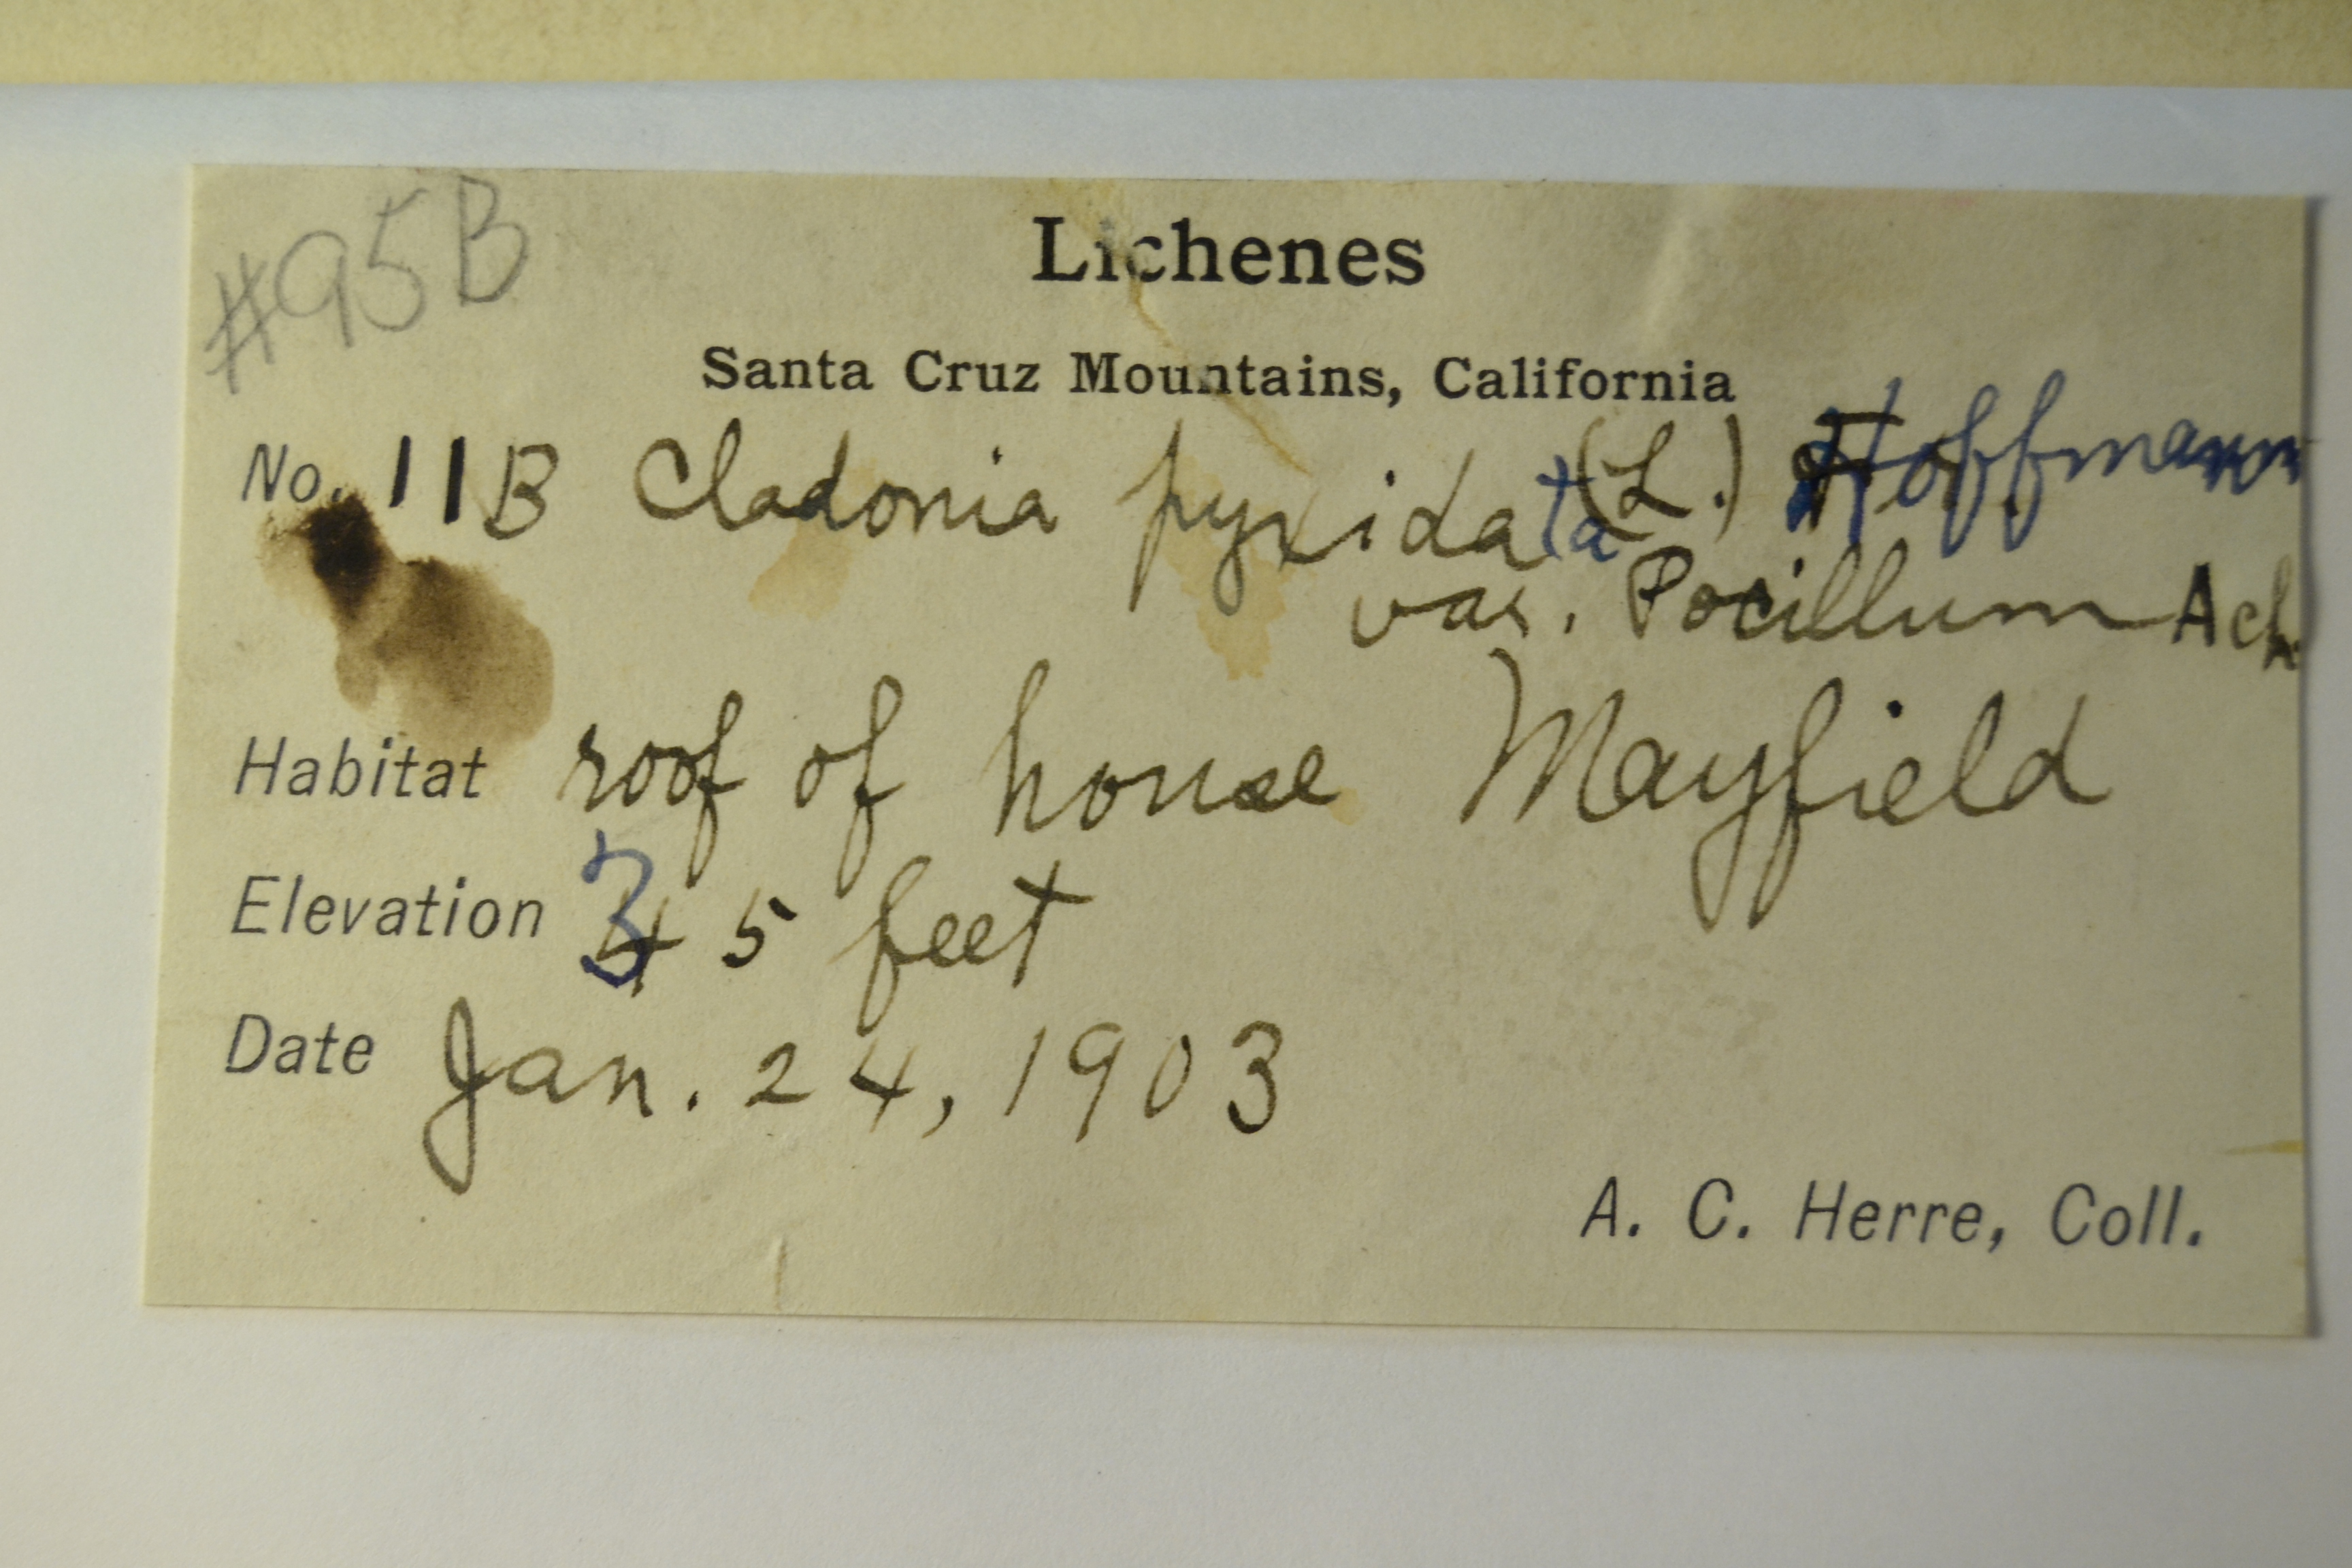 #95B
Lichenes
Santa Cruz Mountains, California
No. 11B Cladonia pyxidata (L.) Hoffmann
var. Pocillum Ach.
Habitat roof of house Mayfield
Elevation 35 feet
Date Jan. 24, 1903
A. C. Herre, Coll.